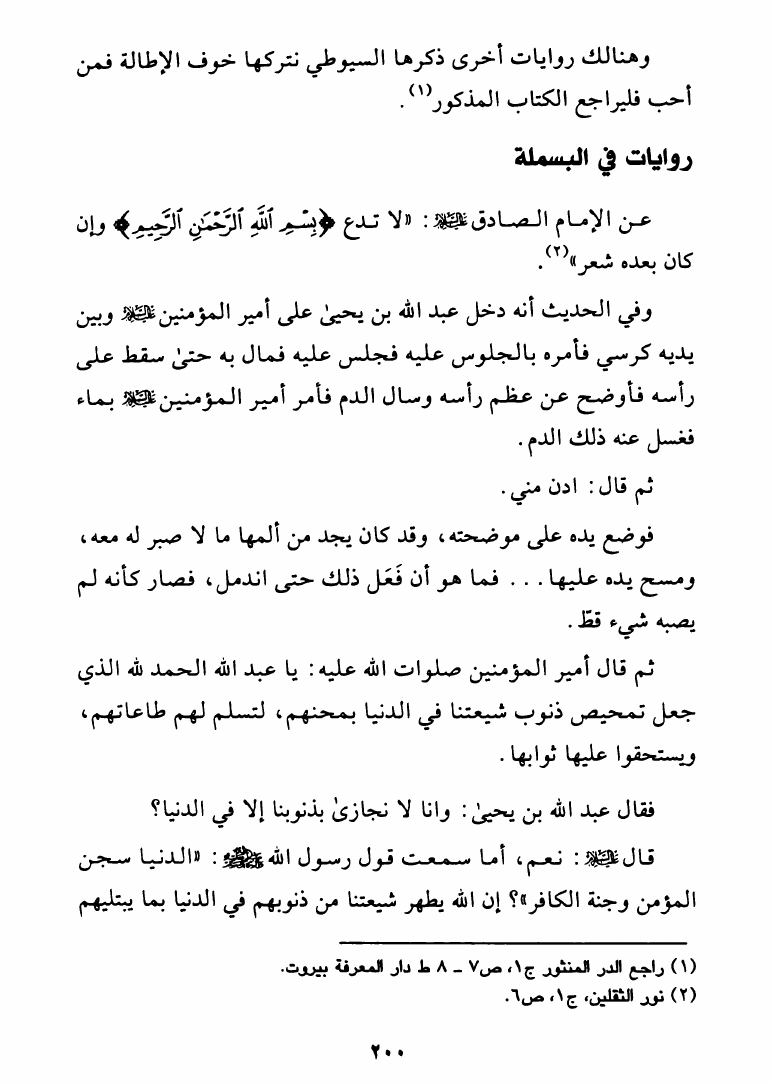 وهنالك روايات أخرى ذكرها السيوطي نتركها خوف الإطالة فمن
أحب فليراجع الكتاب المذكور(١).
روايات في البسملة
عن الإمام الصادق عليه السلام: «لا تدع ﴿بِسْمِ ٱللَّهِ ٱلرَّحْمَٰنِ ٱلرَّحِيمِ﴾ وإن
كان بعده شعر»(٢).
وفي الحديث أنه دخل عبد الله بن يحيىٰ على أمير المؤمنين عليه السلام وبين
يديه كرسي فأمره بالجلوس عليه فجلس عليه فمال به حتىٰ سقط على
رأسه فأوضح عن عظم رأسه وسال الدم فأمر أمير المؤمنين عليه السلام بماء
فغسل عنه ذلك الدم.
ثم قال: ادن مني.
فوضع يده على موضحته، وقد كان يجد من ألمها ما لا صبر له معه،
ومسح يده عليها... فما هو أن فَعَل ذلك حتى اندمل، فصار كأنه لم
يصبه شيء قطّ.
ثم قال أمير المؤمنين صلوات الله عليه: يا عبد الله الحمد لله الذي
جعل تمحيص ذنوب شيعتنا في الدنيا بمحنهم، لتسلم لهم طاعاتهم،
ويستحقوا عليها ثوابها.
فقال عبد الله بن يحيىٰ: وانا لا نجازىٰ بذنوبنا إلا في الدنيا؟
قال عليه السلام: نعم، أما سمعت قول رسول الله ﷺ: «الدنيا سجن
المؤمن وجنة الكافر»؟ إن الله يطهر شيعتنا من ذنوبهم في الدنيا بما يبتليهم
(١) راجع الدر المنثور ج١، ص٧ ـ ٨ ط دار المعرفة بيروت.
(٢) نور الثقلين، ج١، ص٦.
٢٠٠